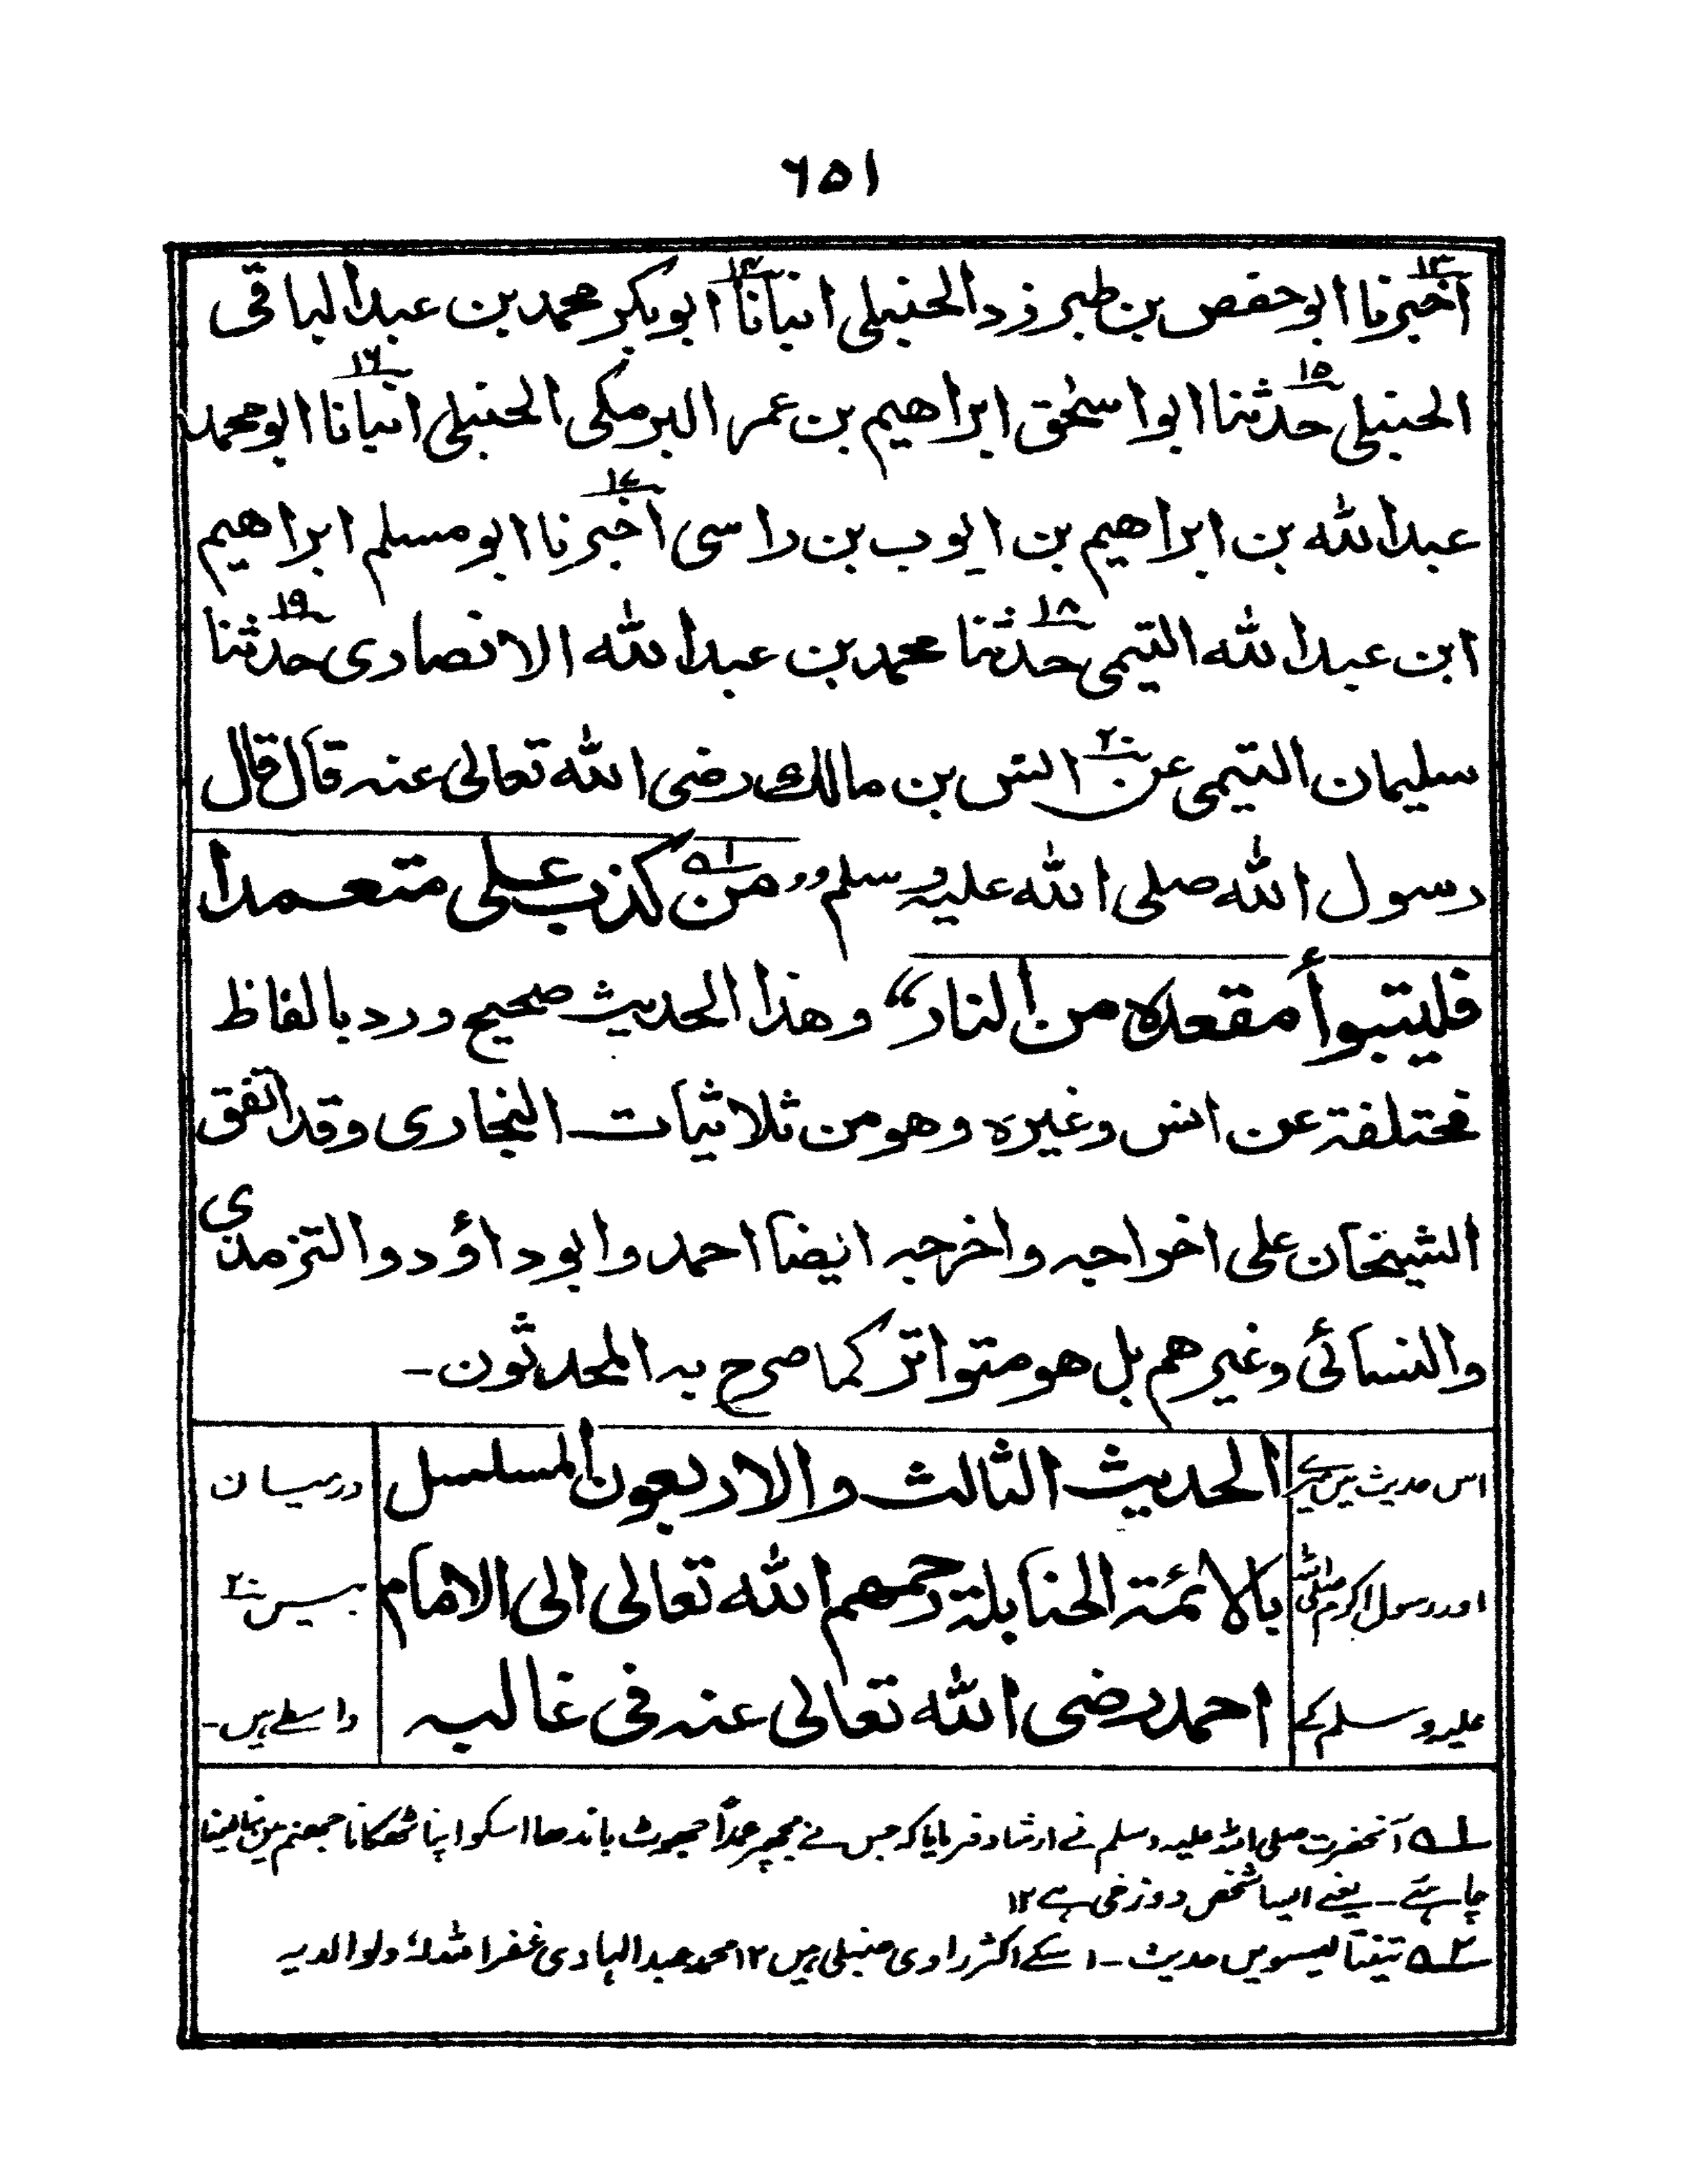 ۶۵۱
۱۳ ۱۴
اخبرنا ابو حفص بن طبرزد الحنبلی انبانا ابو بکر محمد بن عبد الباقی
۱۵ ۱۶
الحنبلی حدثنا ابو اسحٰق ابراهیم بن عمر البرمکی الحنبلی انبانا ابو محمد
۱۷
عبد الله بن ابراهیم بن ایوب بن راسی اخبرنا ابو مسلم ابراهیم
۱۸ ۱۹
ابن عبد الله التیمی حدثنا محمد بن عبد الله الانصاری حدثنا
۲۰
سلیمان التیمی عن انس بن مالک رضی الله تعالی عنہ قال قال
رسول الله صلی الله علیہ وسلم ,,من۱ه کذب علی متعمدا
فلیتبوأ مقعده من النار“ وهذا الحدیث صحیح ورد بالفاظ
مختلفۃ عن انس وغیره وهو من ثلاثیات البخاری وقد اتفق
الشیخان علی اخراجہ واخرجہ ایضا احمد وابو داؤد والترمذی
والنسائی وغیرهم بل هو متواتر کما صرح بہ المحدثون۔
اس حدیث میں میرے الحدیث الثالث والاربعون المسلسل درمیان
اور رسول اکرم صلی اللہ بالائمۃ الحنابلۃ رحمهم الله تعالی الی الامام بیس ۲۰
علیہ وسلم کے احمد رضی الله تعالی عنہ فی غالبہ واسطے ہیں۔
۱ه آنحضرت صلی اللہ علیہ وسلم نے ارشاد فرمایا کہ جس نے مجھپر عمداً جھوٹ باندھا اسکو اپنا ٹھکانا جہنم میں بنا لینا
چاہئے۔ یعنے ایسا شخص دوزخی ہے ۱۲
۲ه تینتالیسویں حدیث۔ اسکے اکثر راوی حنبلی ہیں ۱۲ محمد عبد الہادی غفر اللہ لہٗ ولوالدیہ